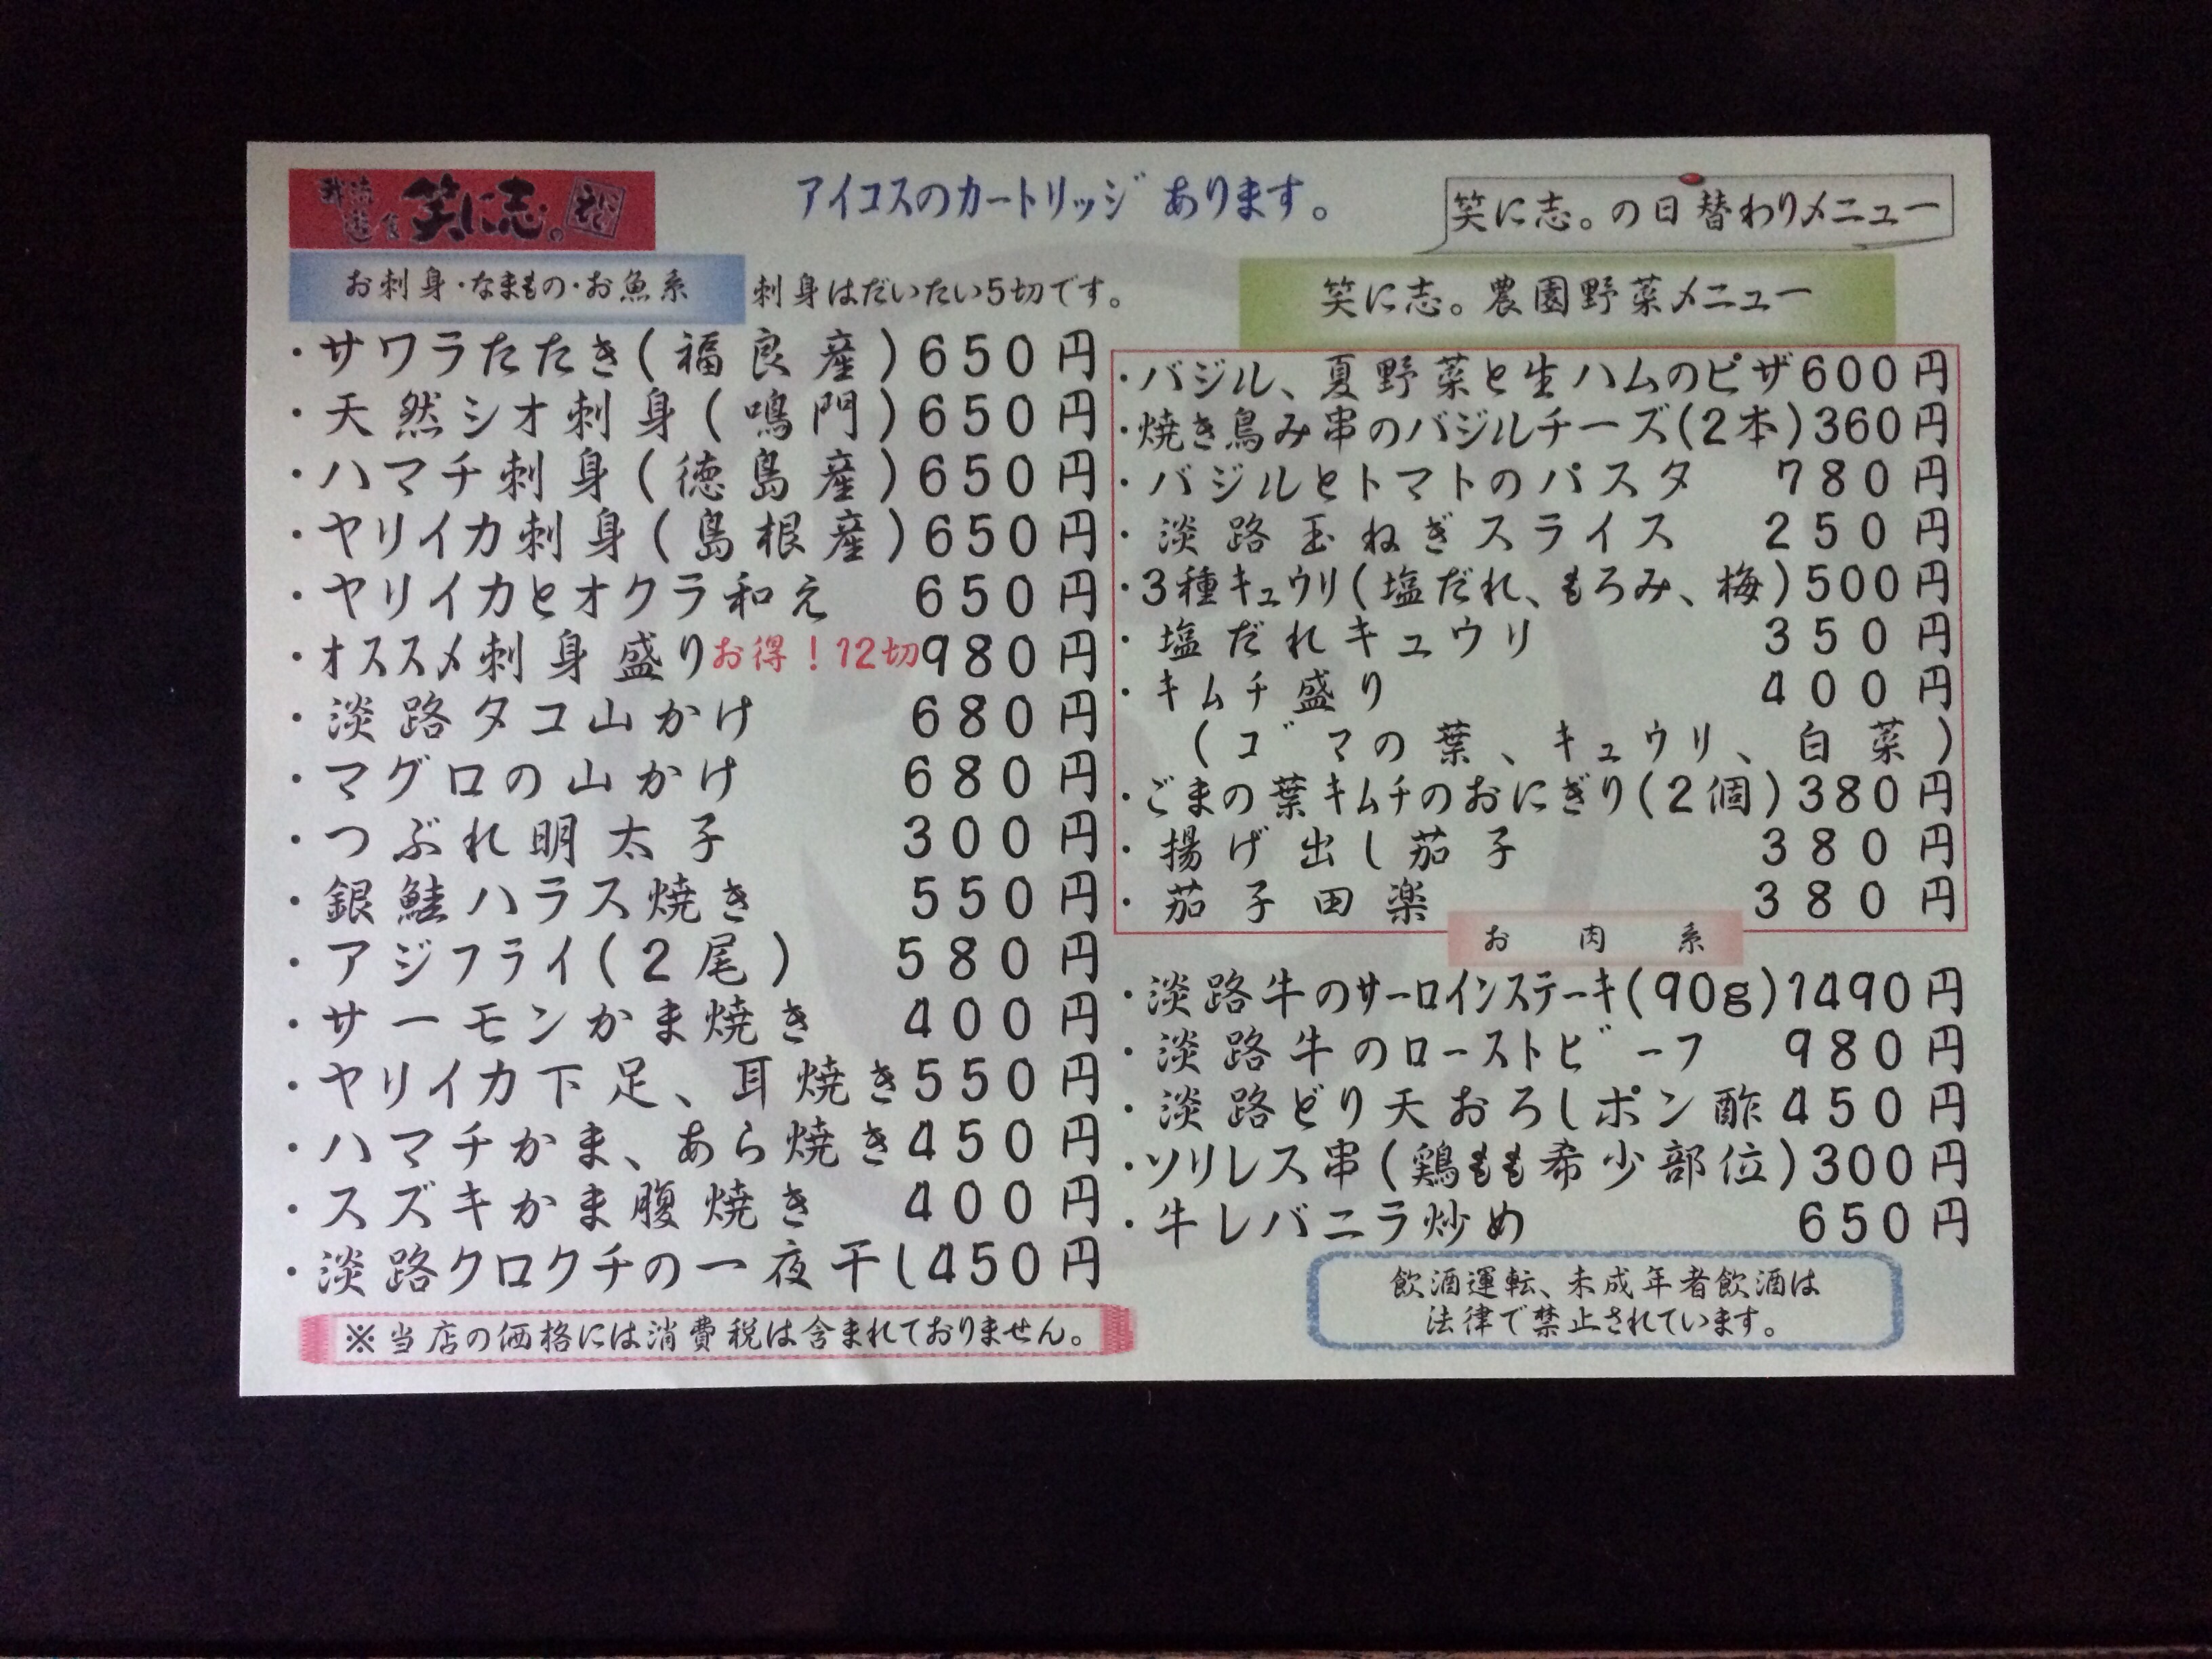 笑に志。
アイコスのカートリッジあります。
笑に志。の日替わりメニュー
お刺身・なまもの・お魚系
刺身はだいたい5切です。
・サワラたたき(福良産)650円
・天然シオ刺身(鳴門)650円
・ハマチ刺身(徳島産)650円
・ヤリイカ刺身(島根産)650円
・ヤリイカとオクラ和え 650円
・オススメ刺身盛りお得!12切980円
・淡路タコ山かけ 680円
・マグロの山かけ 680円
・つぶれ明太子 300円
・銀鮭ハラス焼き 550円
・アジフライ(2尾) 580円
・サーモンかま焼き 400円
・ヤリイカ下足、耳焼き550円
・ハマチかま、あら焼き450円
・スズキかま腹焼き 400円
・淡路クロクチの一夜干し450円
※当店の価格には消費税は含まれておりません。
笑に志。農園野菜メニュー
・バジル、夏野菜と生ハムのピザ600円
・焼き鳥み串のバジルチーズ(2本)360円
・バジルとトマトのパスタ 780円
・淡路玉ねぎスライス 250円
・3種キュウリ(塩だれ、もろみ、梅)500円
・塩だれキュウリ 350円
・キムチ盛り 400円
(ゴマの葉、キュウリ、白菜)
・ごまの葉キムチのおにぎり(2個)380円
・揚げ出し茄子 380円
・茄子田楽 380円
お肉系
・淡路牛のサーロインステーキ(90g)1490円
・淡路牛のローストビーフ 980円
・淡路どり天おろしポン酢450円
・ソリレス串(鶏もも希少部位)300円
・牛レバニラ炒め 650円
飲酒運転、未成年者飲酒は
法律で禁止されています。